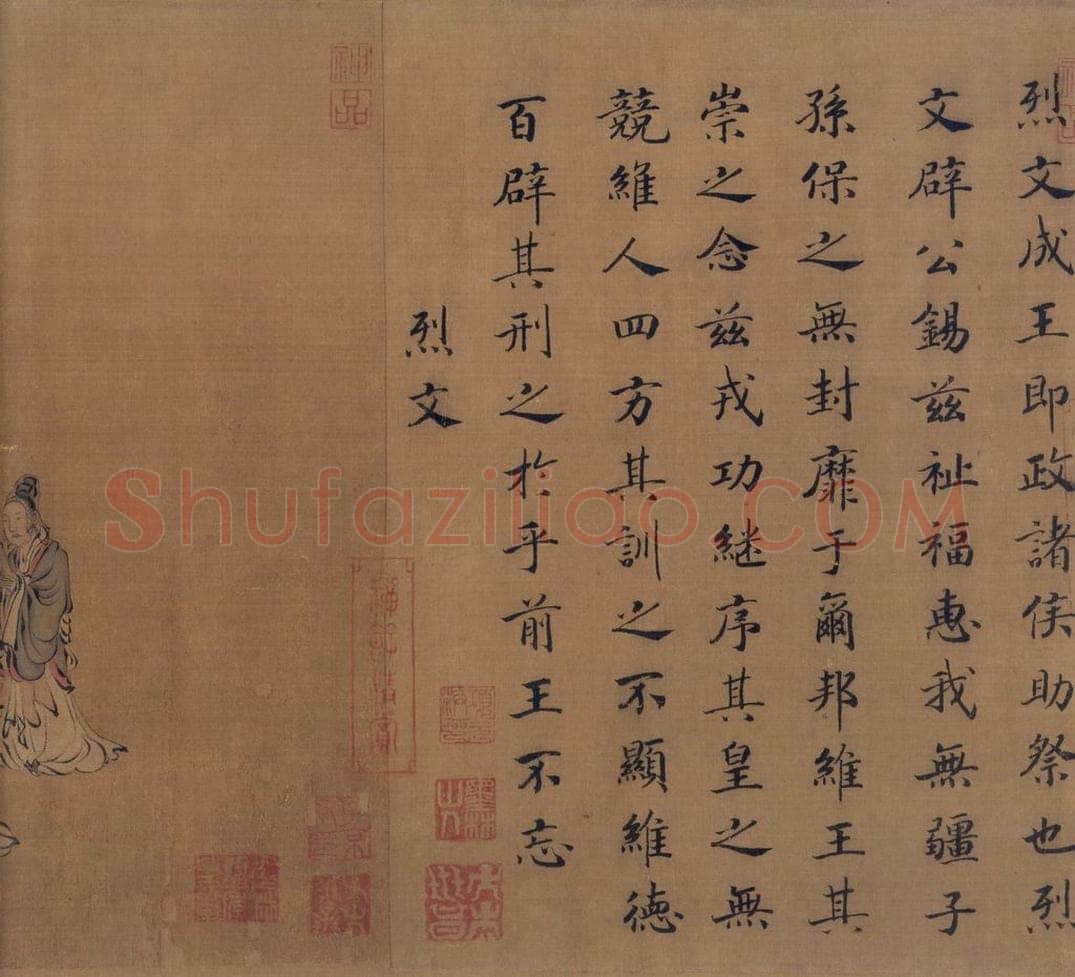 烈文成王即政諸侯助祭也烈
文辟公錫兹祉福惠我無疆子
孫保之無封靡于爾邦維王其
崇之念兹戎功継序其皇之無
競維人四方其訓之不顯維徳
百辟其刑之於乎前王不忘
烈文
神品
Shufaziliao.COM